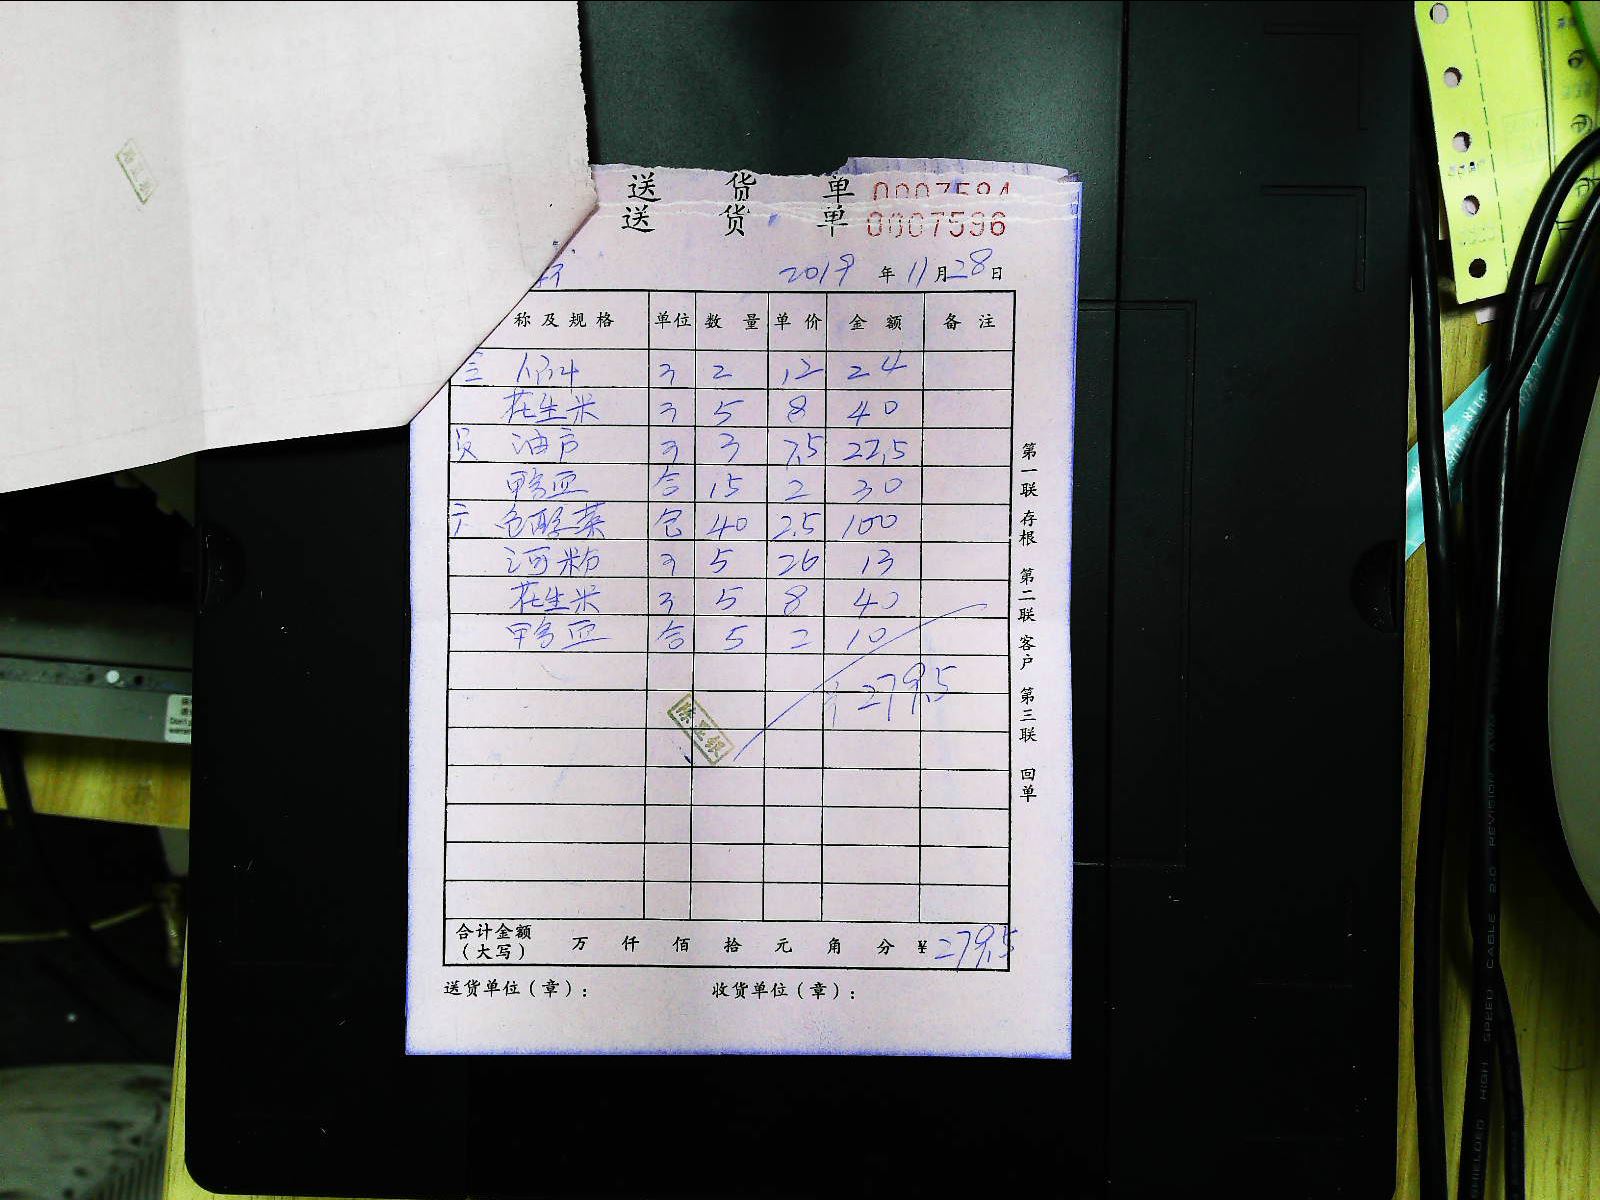 送 货 单 0007594
送 货 单 0007596
2019 年 11 月 28 日
称及规格 单位 数 量 单 价 金 额 备 注
三 斤 2 12 24
花生米 斤 5 8 40
油 斤 3 7.5 22.5
鸭血 合 15 2 30
六 包酸菜 包 40 2.5 100
河粉 斤 5 26 13
花生米 斤 5 8 40
鸭血 合 5 2 10
279.5
合计金额（大写） 万 仟 佰 拾 元 角 分 ¥ 279.5
送货单位（章）： 收货单位（章）：
第一联 存根 第二联 客户 第三联 回单